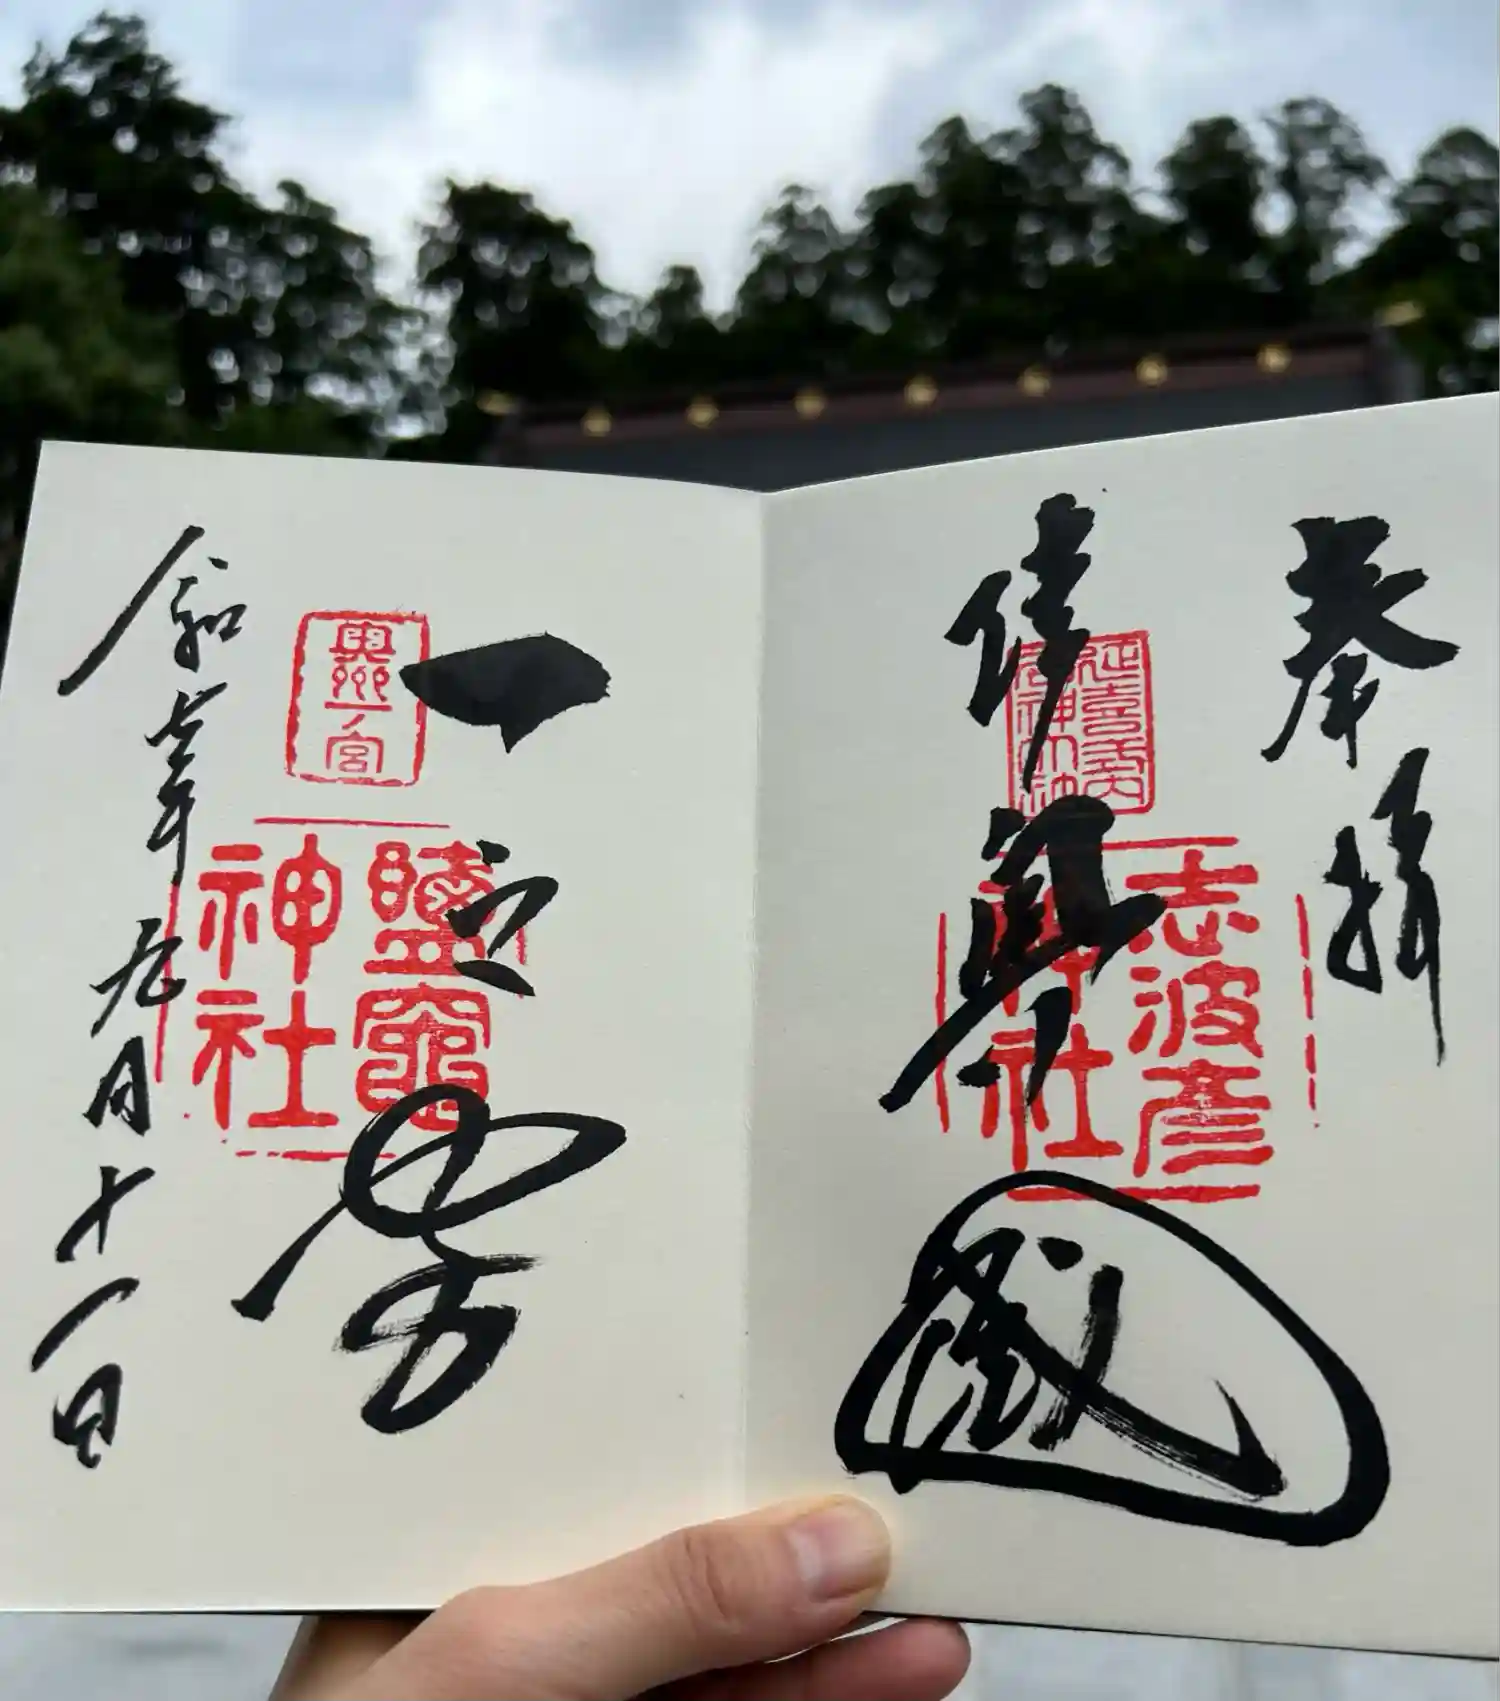 奉拝
陸奥國
延喜式内
名神大社
志波彦
神社
一之宮
奥州一ノ宮
鹽竈
神社
令和七年九月十一日